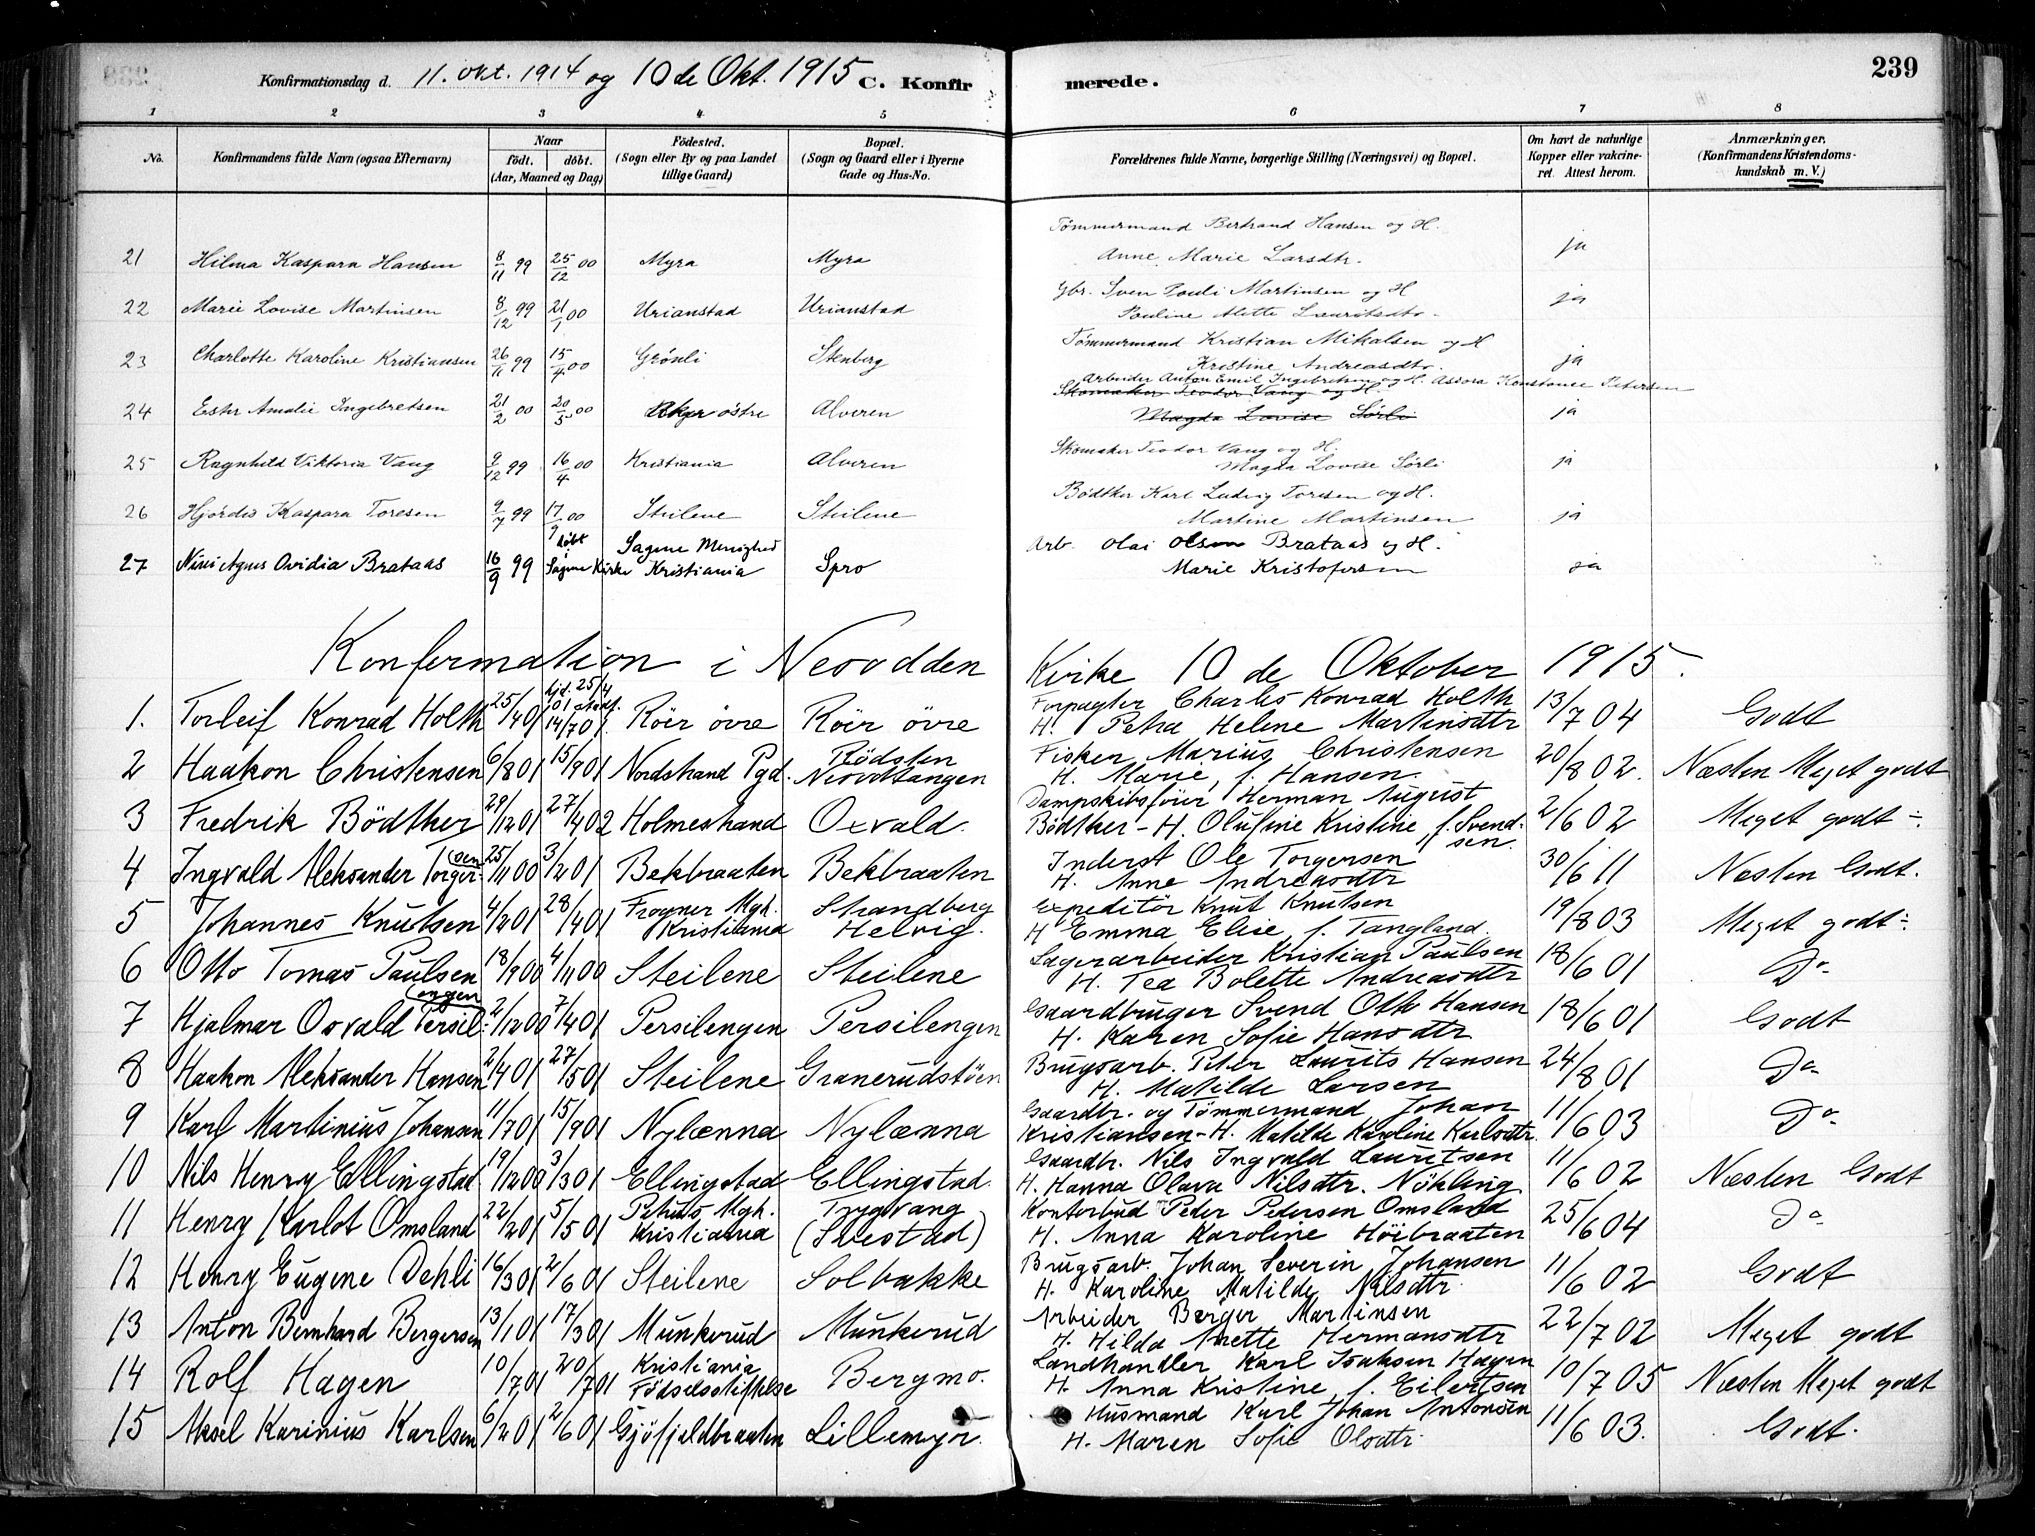 239
Konfirmationsdag d. 11. okt. 1914 og 10 de Okt. 1915 C. Konfirmerede.
1 2 3 4 5 6 7 8
No. Konfirmandens fulde Navn (ogsaa Efternavn) Naar født. døbt. (Aar, Maaned og Dag) Fødested. (Sogn eller By og paa Landet tillige Gaard) Bopæl. (Sogn og Gaard eller i Byerne Gade og Hus-No. Forældrenes fulde Navne, borgerlige Stilling (Næringsvei) og Bopæl. Om havt de naturlige Kopper eller vakcineret. Attest herom. Anmærkninger. (Konfirmandens Kristendomskundskab m. V.)
21 Hilma Kaspara Hansen 8/11 99 25/12 00 Myra Myra Tømmermand Bertrand Hansen og H. Anne Marie Larsdtr. ja
22 Marie Lovise Martinsen 8/12 99 21/1 00 Urianstad Urianstad Gbr. Sven Pouli Martinsen og H Pauline Mette Lauritsdtr. ja
23 Charlotte Karoline Kristiansen 26/11 99 15/4 00 Grønli Stenberg Tømmermand Kristian Mikalsen og H Kristine Andreasdtr. ja
24 Ester Amalie Ingebretsen 21/2 00 20/5 00 Aker østre Alveren Arbeider Anton Emil Ingebretsen og H. Asora Konstance Petersen Skomaker Teodor Vang og H Magda Lovise Sørli ja
25 Ragnhild Viktoria Vang 9/12 99 16/4 00 Kristiania Alveren Skomaker Teodor Vang og H. Magda Lovise Sørli ja
26 Hjørdis Kaspara Toresen 9/7 99 17/9 00 Steilene Steilene Bødtker Karl Ludvig Toresen og H. Martine Martinsen ja
27 Nini Agnes Ovidia Brataas 16/9 99 døbt i Sagene Kirke Sagene Menighed Kristiania Spro Arb. Olai Olsen Brataas og H. Marie Kristofersen ja
Konfermation i Nesodden Kirke 10 de Oktober 1915.
1. Torleif Konrad Holth 25/4 01 hjd. 25/4 01 stadf. 14/7 01 Röir övre Röir övre Forpagter Charles Konrad Holth H. Petra Helene Martinsdtr 13/7 04 Godt
2 Haakon Christensen 6/8 01 15/9 01 Nordstrand Pgd. Rödsten Nesoddtangen Fisker Marius Christensen H. Marie, f. Hansen. 20/8 02. Næsten Meget godt
3 Fredrik Bödtker 29/12 01 27/4 02 Holmestrand Oxvald. Dampskibsförer Herman August Bödtker - H. Olufine Kristine f. Svendsen. 2/6 02 Meget godt ÷
4 Ingvald Aleksander Torgersen 25/11 00 3/2 01 Bekbraaten Bekbraaten Inderst Ole Torgersen H. Anne Andreasdtr 30/6 11 Næsten Godt.
5 Johannes Knutsen 4/2 01 28/4 01 Frogner Mgh. Kristiania Strandberg Helvig. Expeditör Knut Knutsen H Emma Elise f. Tangland. 19/8 03 Meget godt ÷
6 Otto Tomas Paulsen 18/9 00 4/11 00 Steilene Steilene Lagerarbeider Kristian Paulsen H. Tea Bolette Andreasdtr 18/6 01 Do
7 Hjalmar Osvald Persilengen 2/12 00 7/4 01 Persilengen Persilengen Gaardbruger Svend Otto Hansen H. Karen Sofie Hansdtr 18/6 01 Godt
8 Haakon Aleksander Hansen 2/4 01 27/5 01 Steilene Granerudstöen Brugsarb. Peter Laurits Hansen H. Matilde Larsen 24/8 01 Do
9 Karl Martinius Johansen 11/7 01 15/9 01 Nylænna Nylænna Gaardbr. og Tömmermand Johan Kristiansen - H. Matilde Karoline Karlsdtr. 11/6 03 Do
10 Nils Henry Ellingstad 19/12 00 3/3 01 Ellingstad Ellingstad. Gaardbr. Nils Ingvald Lauritsen H. Hanna Olava Nilsdtr. Nökling 11/6 02 Næsten Godt
11 Henry Karlot Omsland 22/2 01 5/5 01 Petrus Mgh. Kristiania Trygvang (Svestad) Kontorbud Peder Petersen Omsland H. Anna Karoline Höibraaten 25/6 04 Do
12 Henry Eugene Dehli 16/3 01 2/6 01 Steilene Solbakke Brugsarb. Johan Severin Johansen H. Karoline Matilde Nilsdtr. 11/6 02 Godt
13 Anton Bernhard Bergersen 13/1 01 17/3 01 Munkerud Munkerud Arbeider Berger Martinsen H. Hilda Anette Hermansdtr 22/7 02 Meget godt
14 Rolf Hagen 10/7 01 20/7 01 Kristiania Födselsstiftelse Bergmo. Landhandler Karl Isaksen Hagen H. Anna Kristine, f. Eilertsen 10/7 05 Næsten Meget godt
15 Aksel Karinius Karlsen 6/2 01 2/6 01 Gjöfjeldbraaten Lillemyr. Husmand Karl Johan Antonsen H. Maren Sofie Olsdtr 11/6 03. Godt.